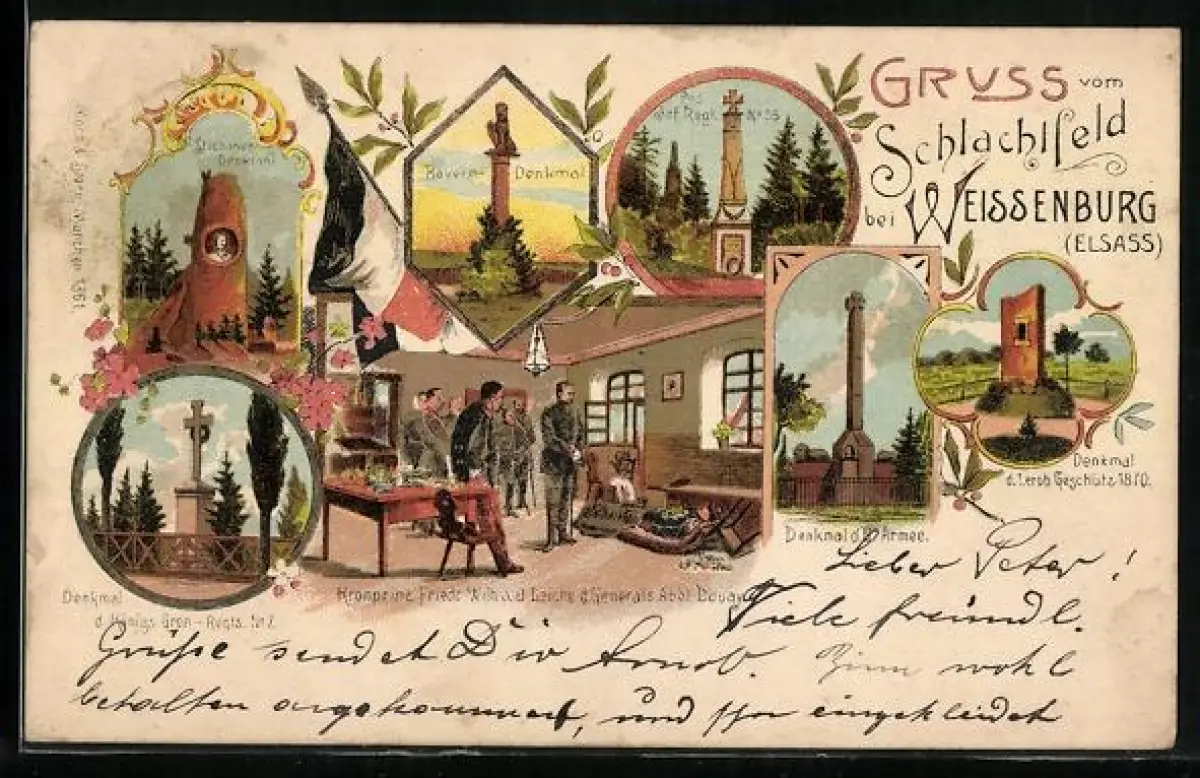 GRUSS vom
Schlachtfeld
bei WEISSENBURG
(ELSASS)
Denkmal
Bayern-Denkmal
Regt. No 58
Denkmal
d. I. erob. Geschütz 1870.
Denkmal d. Armee.
Denkmal
d. Königs Gren-Regts. No 7.
Kronprinz Friedr. Wilh. a. d. Leiche d. Generals Abel Douay
Lieber Peter!
Viele freundl.
Grüße sendet Dir Arnold. Bin wohl
behalten angekommen, und schon eingekleidet